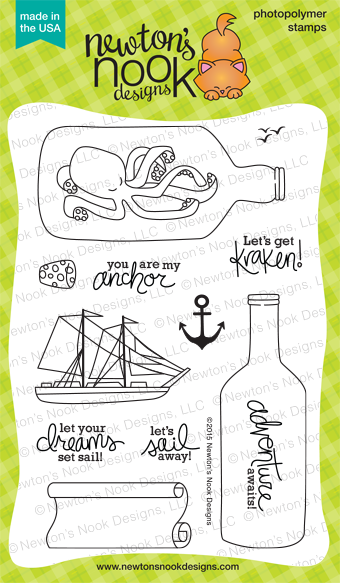 made in
the USA
newton's
nook
designs
photopolymer
stamps
© Newton's Nook Designs, LLC
you are my
anchor
Let's get
Kraken!
let your
dreams
set sail!
let's
sail
away!
©2015 Newton's Nook Designs
adventure
awaits!
www.newtonsnookdesigns.com